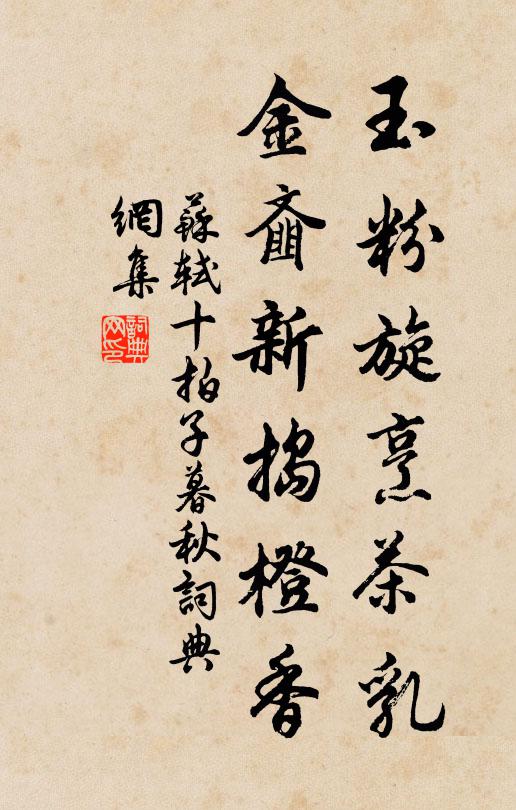 玉粉旋烹茶乳
金齏新搗橙香
蘇軾十拍子暮秋詞典
網集
詞典
网印